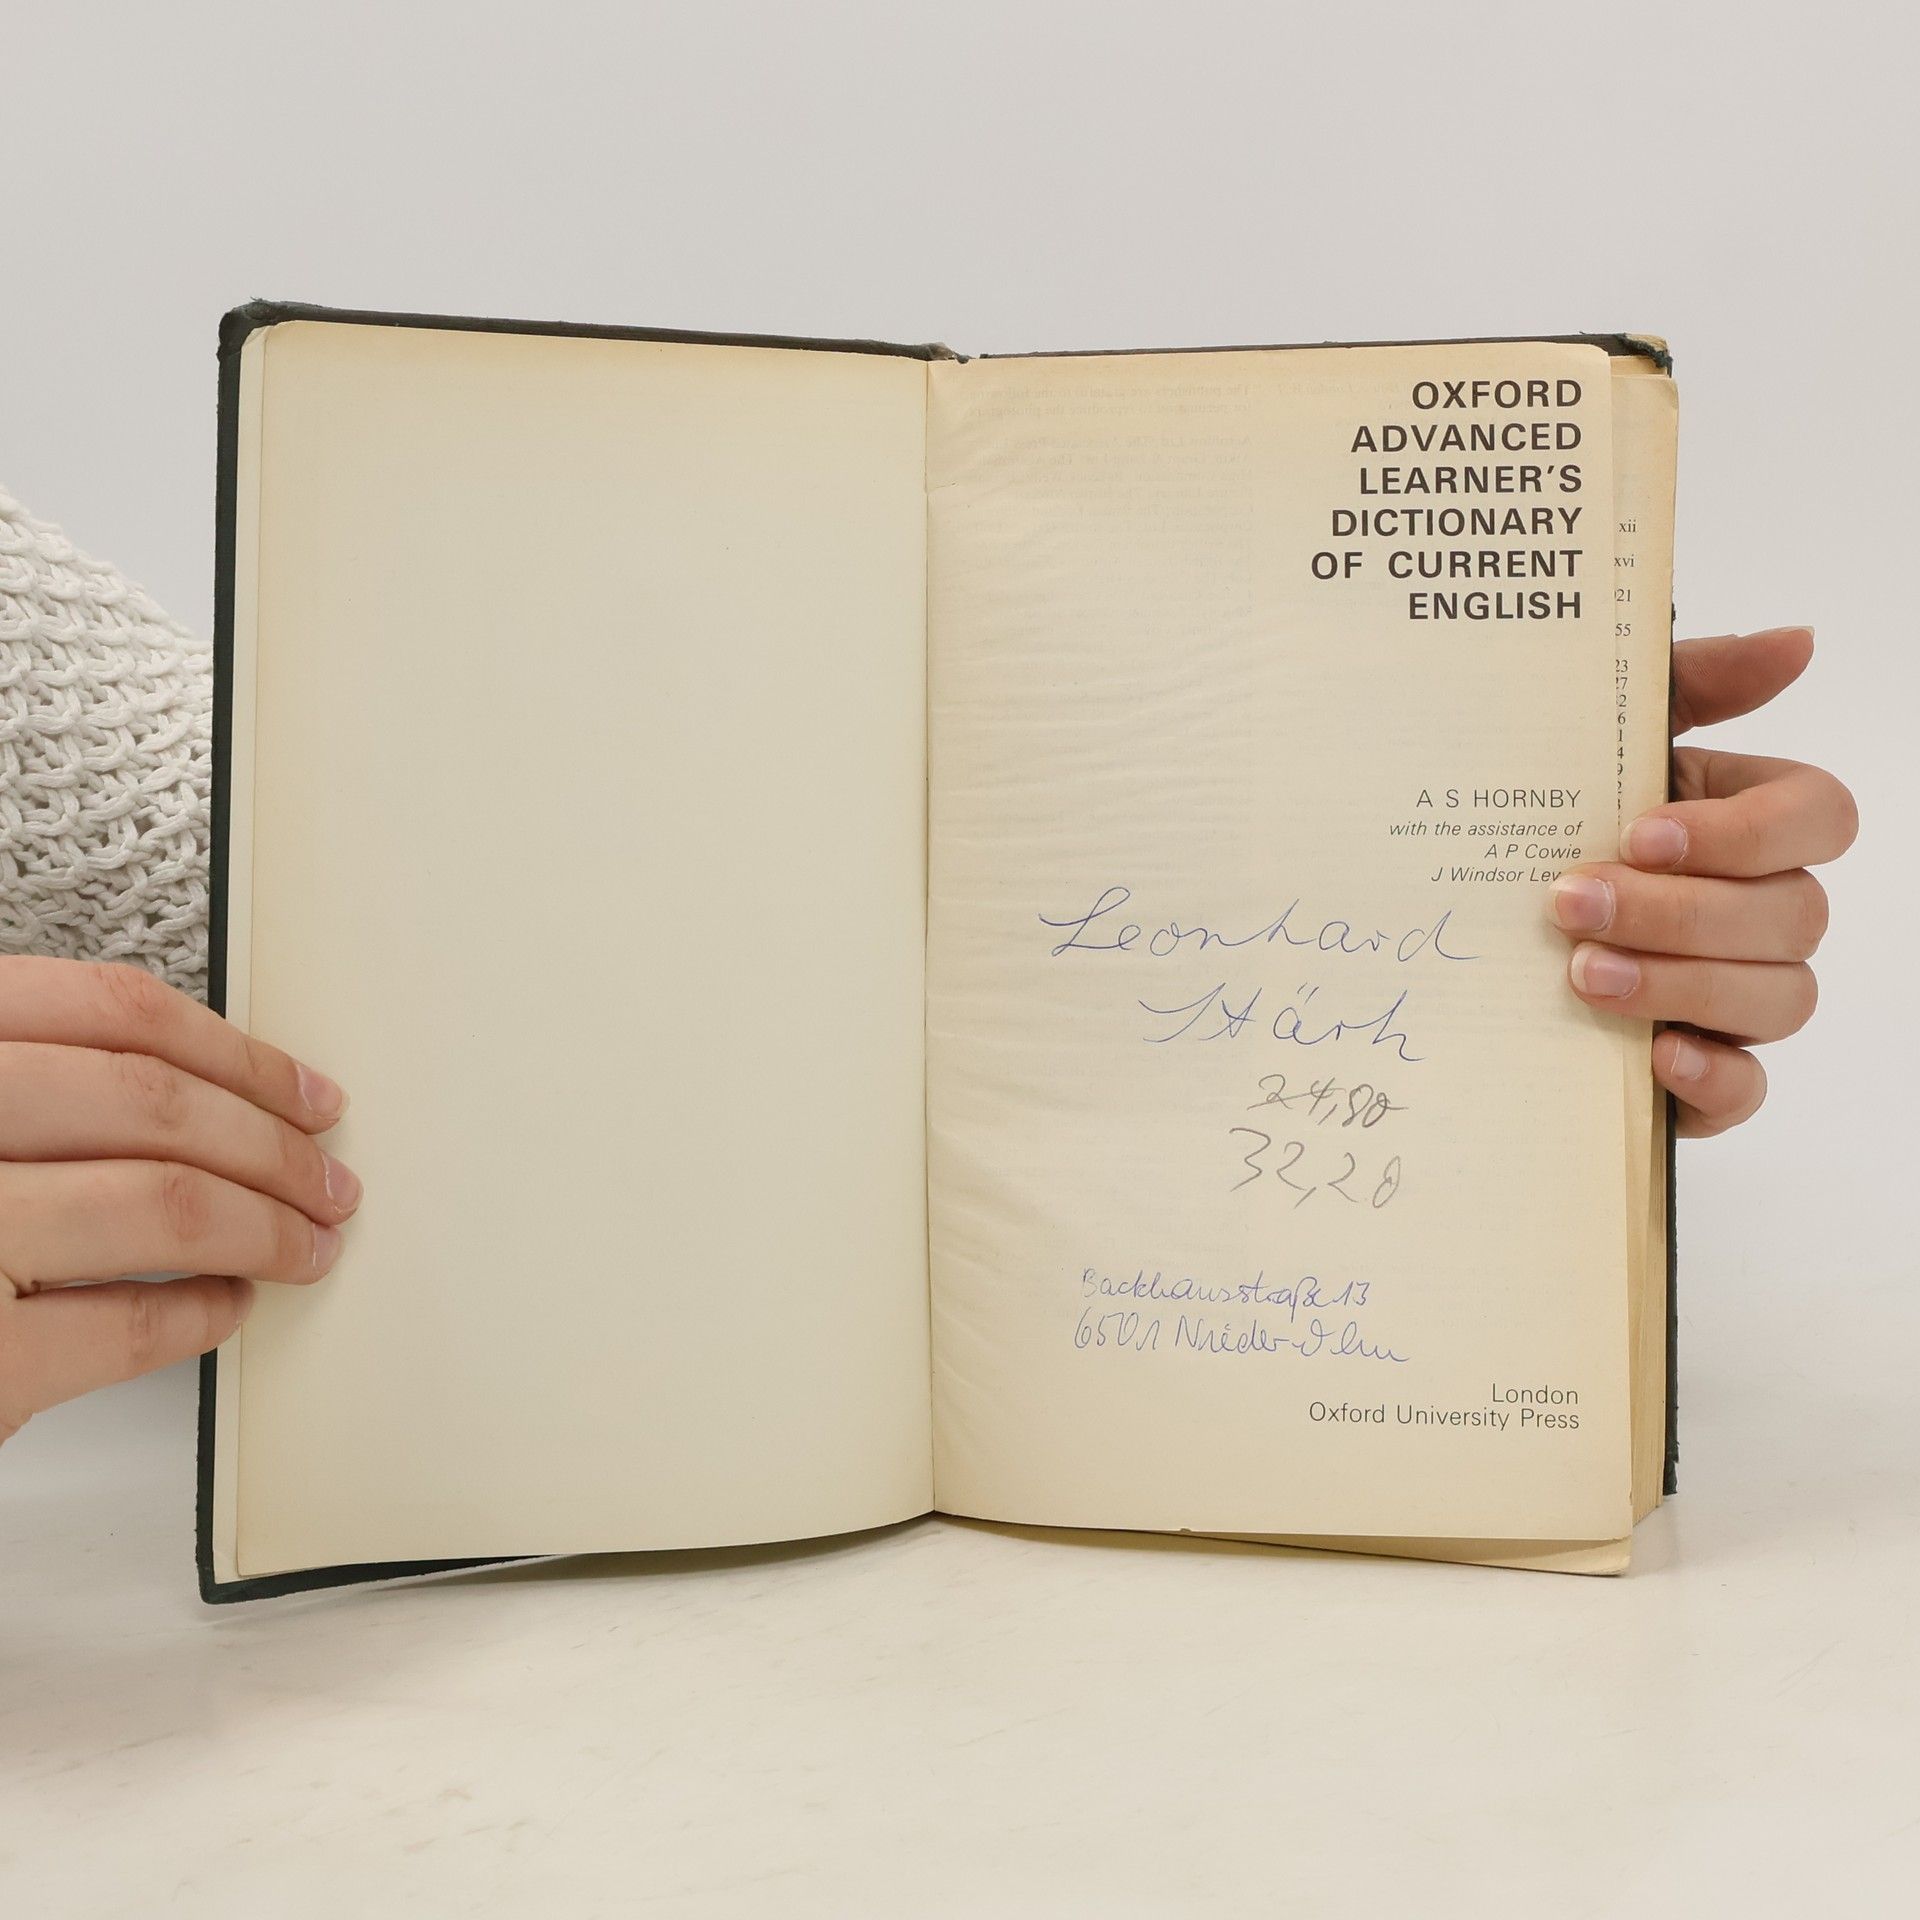 OXFORD
ADVANCED
LEARNER'S
DICTIONARY
OF CURRENT
ENGLISH
A S HORNBY
with the assistance of
A P Cowie
J Windsor
Leonhard
Stärk
24,80
32,20
Backhausstraße 13
6501 Nieder-Olm
London
Oxford University Press
xii
xvi
21
55
23
27